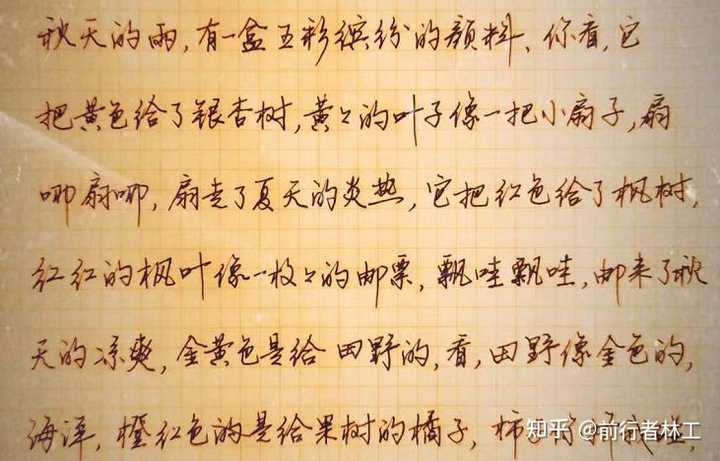 秋天的雨,有一盒五彩缤纷的颜料、你看,它
把黄色给了银杏树,黄々的叶子像一把小扇子,扇
唧扇唧,扇走了夏天的炎热,它把红色给了枫树,
红红的枫叶像一枚々的邮票,飘哇飘哇,邮来了秋
天的凉爽,金黄色是给田野的,看,田野像金色的,
海洋,橙红色的是给果树的橘子,柿子
知乎 @前行者林工